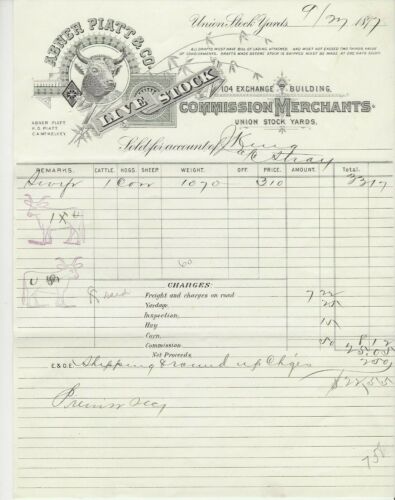 ABNER PIATT & CO.
LIVE STOCK
Union Stock Yards, 9/27 1887
ALL DRAFTS MUST HAVE BILL OF LADING ATTACHED, AND MUST NOT EXCEED TWO THIRDS VALUE
OF CONSIGNMENTS. DRAFTS MADE BEFORE STOCK IS SHIPPED MUST BE MADE AT ONE DAYS SIGHT.
104 EXCHANGE BUILDING,
COMMISSION MERCHANTS
UNION STOCK YARDS,
ABNER PIATT
Sold for account of J King
a/c Stray
REMARKS. CATTLE. HOGS. SHEEP WEIGHT. OFF. PRICE. AMOUNT. Total.
Swift 1 Cow 1070 310 3317
60
CHARGES:
Freight and charges on road 7 22
Yardage 25
Inspection,
Hay 15
Corn
Commission 50 8 12
Net Proceeds. 25.05
E.& O.E. Shipping & round up Ch'ges 2 50
$22 55
75